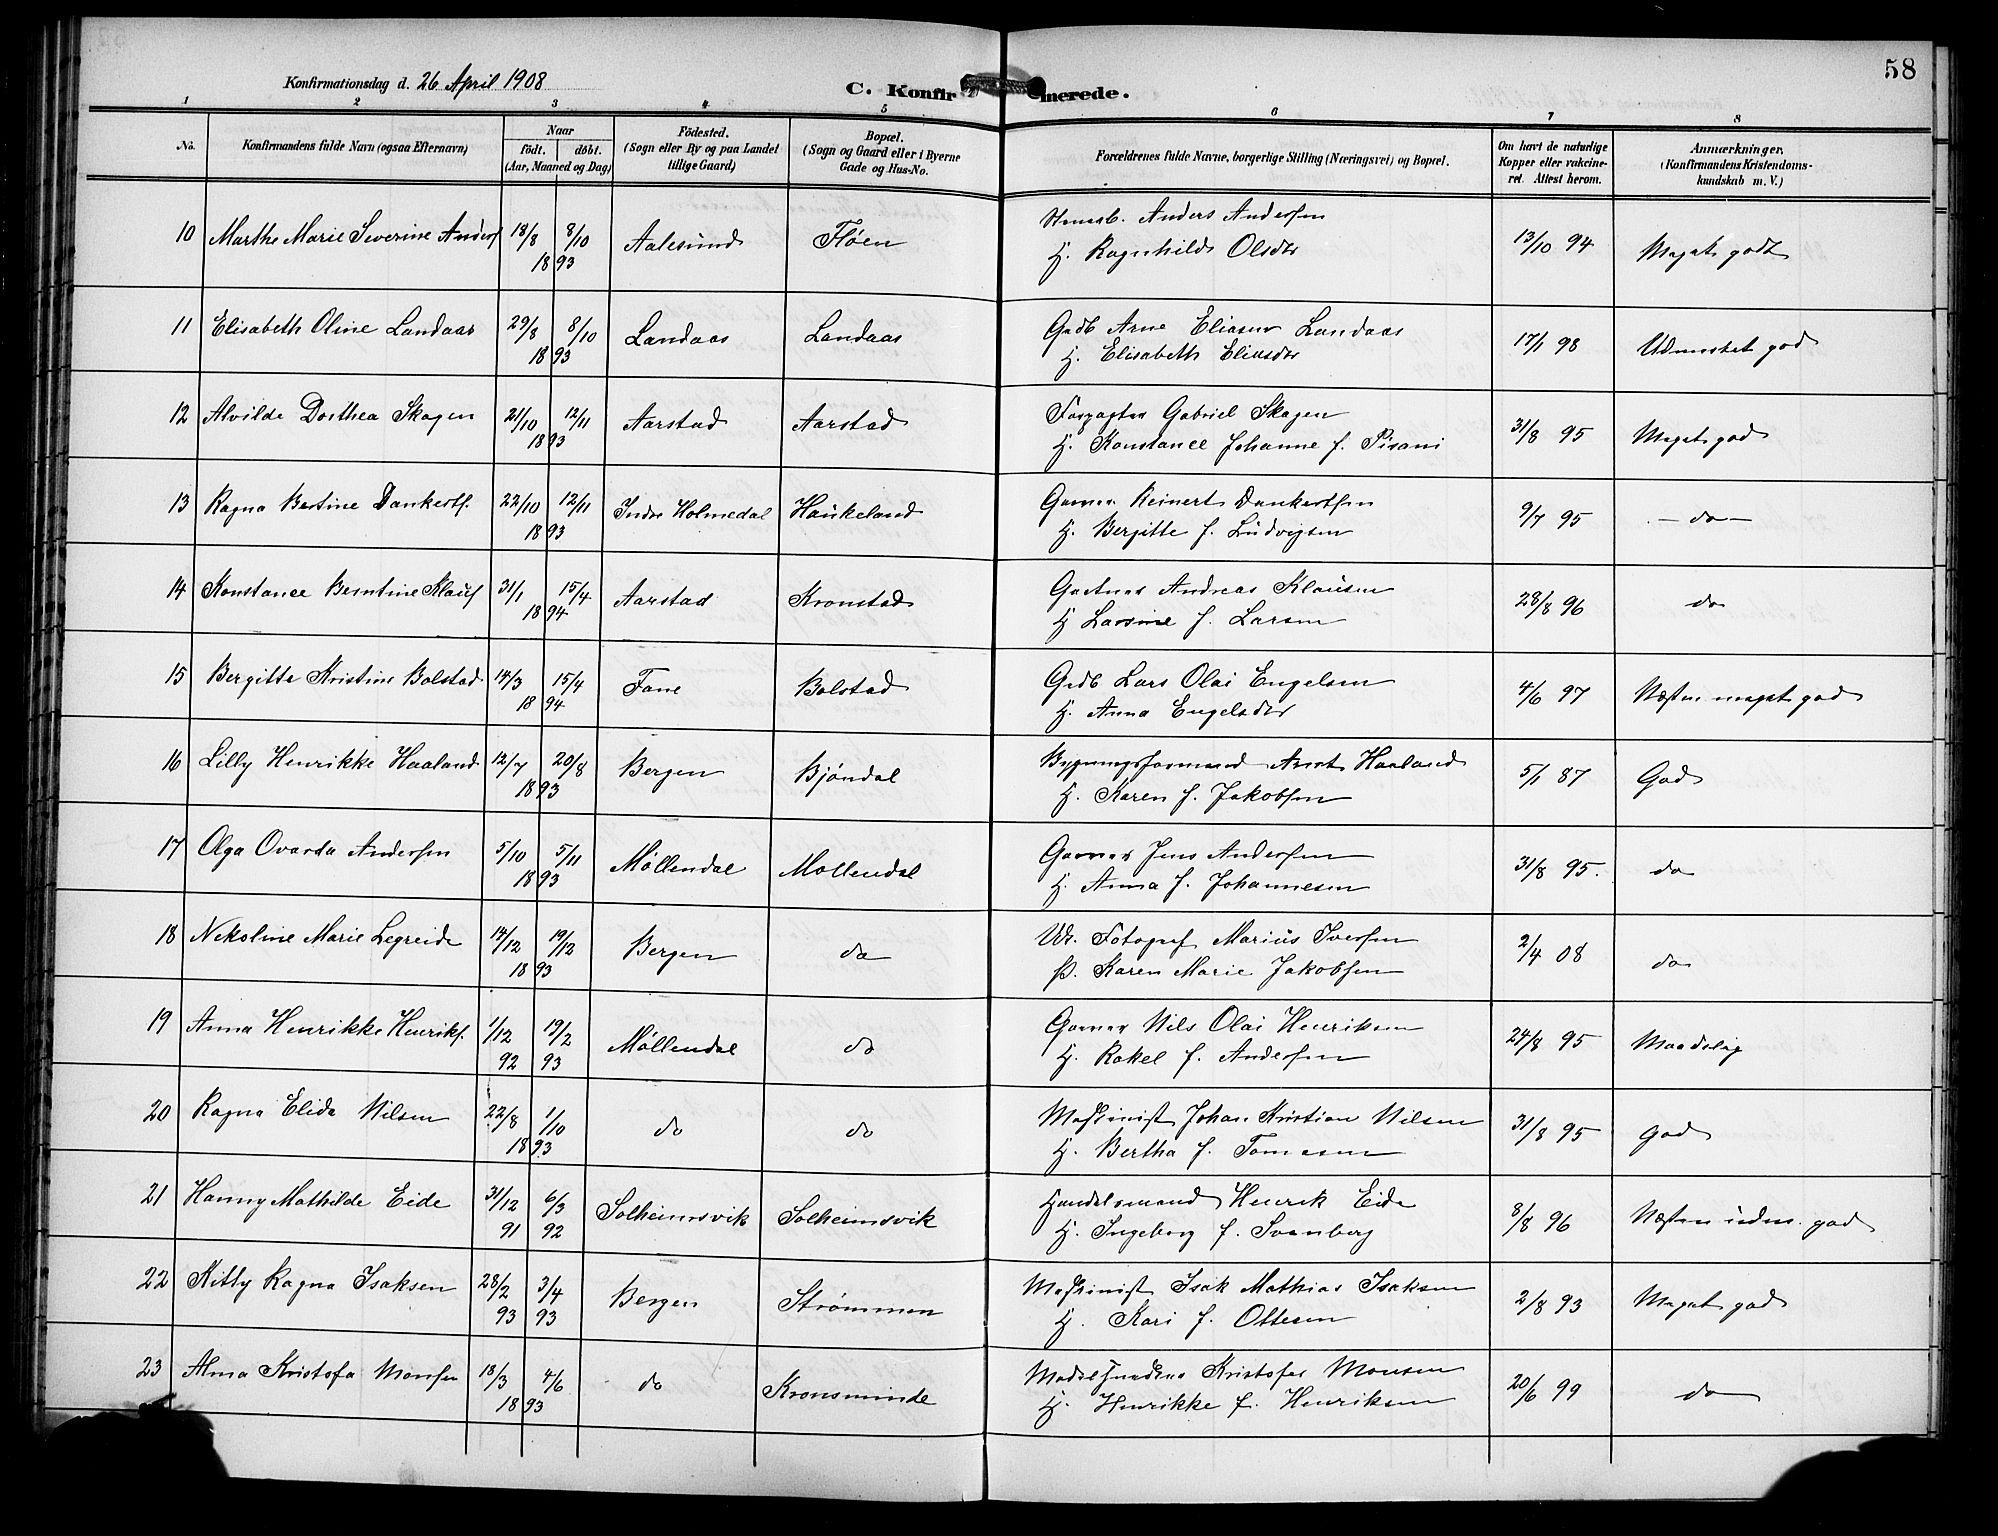 58
Konfirmationsdag d. 26 April 1908
C. Konfirmerede.
1 2 3 4 5 6 7 8
No.
Konfirmandens fulde Navn (ogsaa Efternavn)
Naar
födt. döbt.
(Aar, Maaned og Dag)
Födested.
(Sogn eller By og paa Landet
tillige Gaard)
Bopæl.
(Sogn og Gaard eller i Byerne
Gade og Hus-No.
Forældrenes fulde Navne, borgerlige Stilling (Næringsvei) og Bopæl.
Om havt de naturlige
Kopper eller vakcine-
ret. Attest herom.
Anmærkninger,
(Konfirmandens Kristendoms-
kundskab m. V.)
10 Marthe Marie Severine Anders 18/8 8/10 Aalesund Fløen Anders Andersen 13/10 94 Meget godt
18 93 H. Ragnhild Olsdtr
11 Elisabeth Oline Landaas 29/8 8/10 Landaas Landaas Grdb Arne Eliasen Landaas 17/1 98 Udmerket god
18 93 H. Elisabeth Eliasdtr
12 Alvilde Dorthea Skagen 21/10 12/11 Aarstad Aarstad Forpagter Gabriel Skagen 31/8 95 Meget god
18 93 H. Konstance Johanne f. Pisani
13 Ragna Bertine Dankerts. 22/10 12/11 Indre Holmedal Haukeland Garver Reinert Dankertsen 9/7 95 - do -
18 93 H. Bergitte f. Ludvigsen
14 Konstance Berntine Klaus 31/1 15/4 Aarstad Kronstad Gartner Andreas Klausen 28/8 96 do
18 94 H Larsine f. Larsen
15 Bergitte Kristine Bolstad 14/3 15/4 Fane Bolstad Grdb Lars Olai Engelsen 4/6 97 Næsten meget god
18 94 H. Anna Engelsdtr
16 Lilly Henrikke Haaland 12/7 20/8 Bergen Bjøndal Bygningsformand Arnt Haaland 5/1 87 God
18 93 H. Karen f. Jakobsen
17 Olga Ovarda Andersen 5/10 5/11 Møllendal Møllendal Garver Jens Andersen 31/8 95. do
18 93 H. Anna f. Johannesen
18 Nekoline Marie Legreide 14/12 19/12 Bergen do Fotograf Marius Iversen 2/4 08 do
18 93 P. Karen Marie Jakobsen
19 Anna Henrikke Henriks. 1/12 19/2 Møllendal do Garver Nils Olai Henriksen 24/8 95 Maadelig
92 93 H. Rakel f. Andersen
20 Ragna Elida Nilsen 22/8 1/10 do do Maskinist Johan Kristian Nilsen 31/8 95 God
18 93 H. Bertha f. Tomesen
21 Hanny Mathilde Eide 31/12 6/3 Solheimsvik Solheimsvik Handelsmand Henrik Eide 8/8 96 Næsten udm. god
91 92 H. Ingeborg f. Svanberg
22 Kitty Ragna Isaksen 28/2 3/4 Bergen Strømmen Maskinist Isak Mathias Isaksen 2/8 93 Meget god
93 93 H. Kari f. Ottesen
23 Alma Kristofa Monsen 18/3 4/6 do Kronsminde Kristofer Monsen 20/6 99 do
18 93 H. Henrikke f. Henriksen